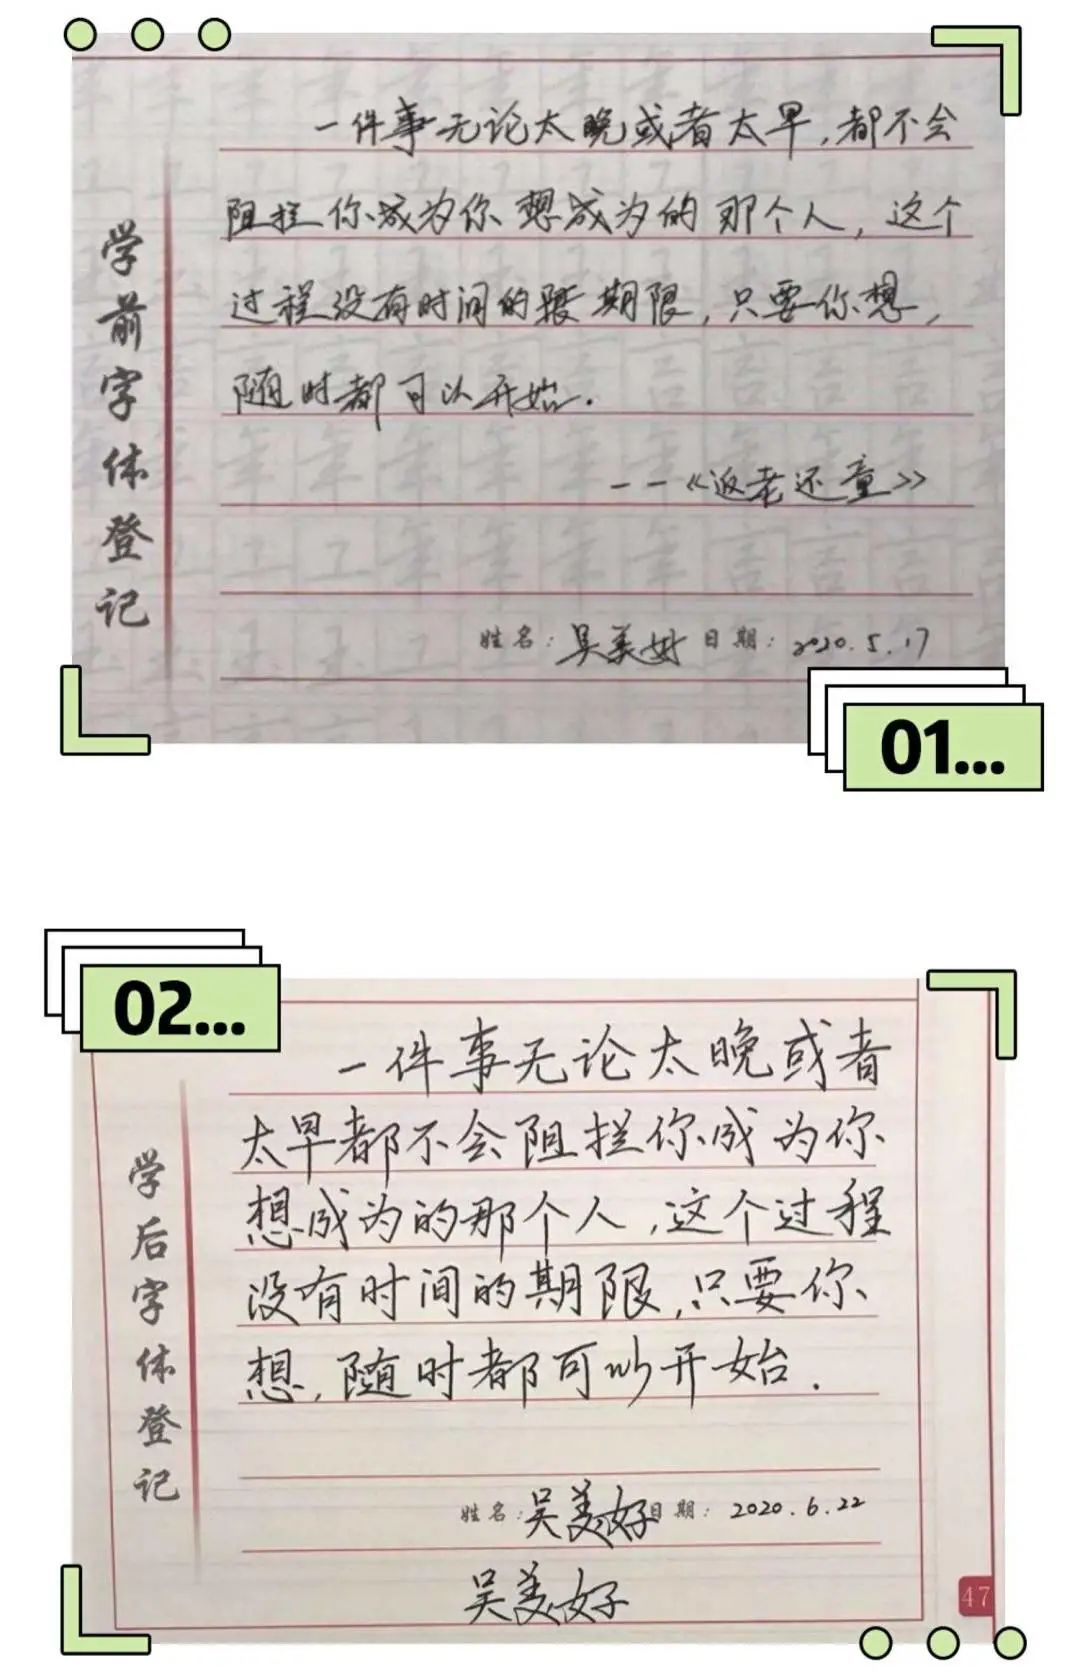 一件事无论太晚或者太早,都不会
阻拦你成为你想成为的那个人,这个
过程没有时间的期限,只要你想,
随时都可以开始.
——《返老还童》
姓名:吴美好 日期:2020.5.17
学前字体登记
01...
02...
一件事无论太晚或者
太早都不会阻拦你成为你
想成为的那个人,这个过程
没有时间的期限,只要你
想,随时都可以开始.
姓名:吴美好日期:2020.6.22
吴美好
学后字体登记
47